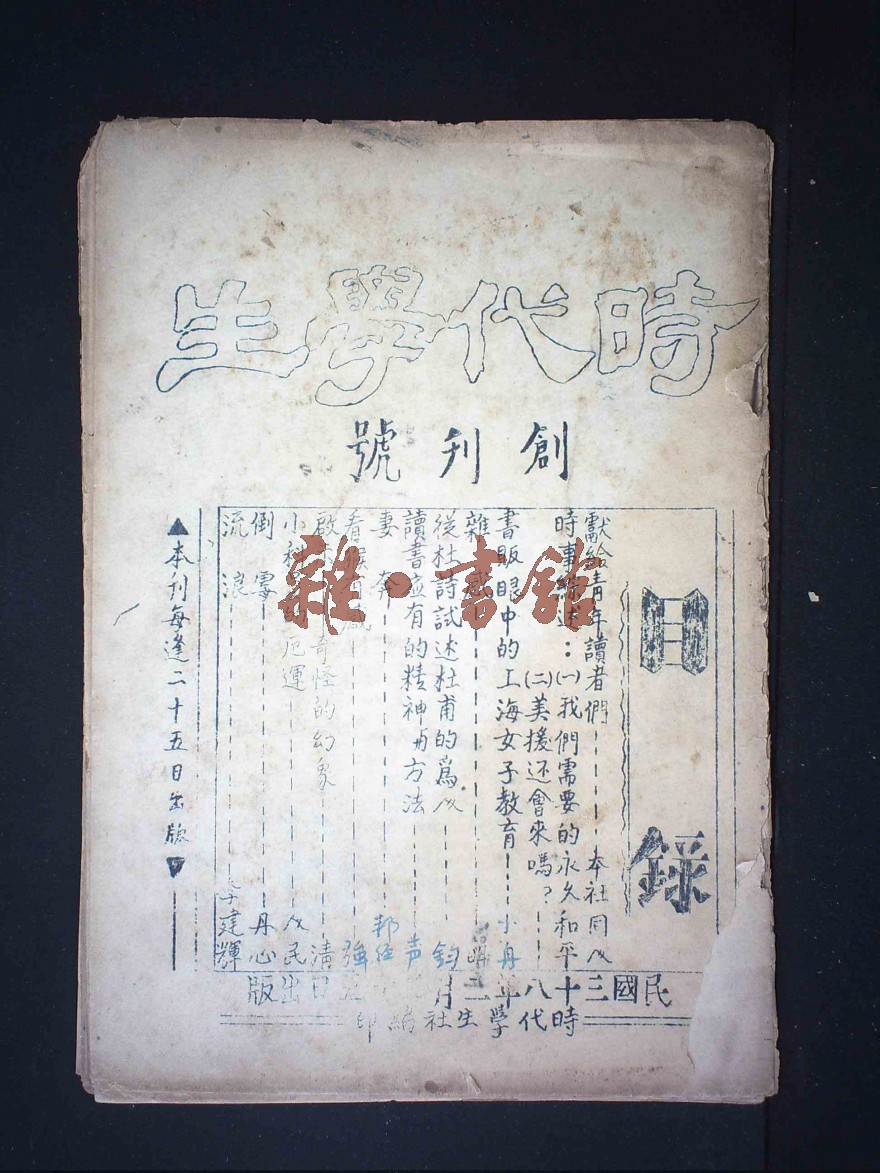 時代學生
創刊號
目錄
獻給青年讀者們 本社同人
時事綜述：(一)我們需要的永久和平
(二)美援还會來嗎？
書販眼中的上海女子教育 小丹
雜感
從杜詩試述杜甫的爲人 鈞
讀書应有的精神与方法 声
妻奔 邦經
看 強
啟 奇怪的幻象 清
小 厄運 人民
倒霉 丹心
流浪 李建輝
民國三十八年二月 日出版
時代學生社編印
▲本刊每逢二十五日出版▼
雜·書館